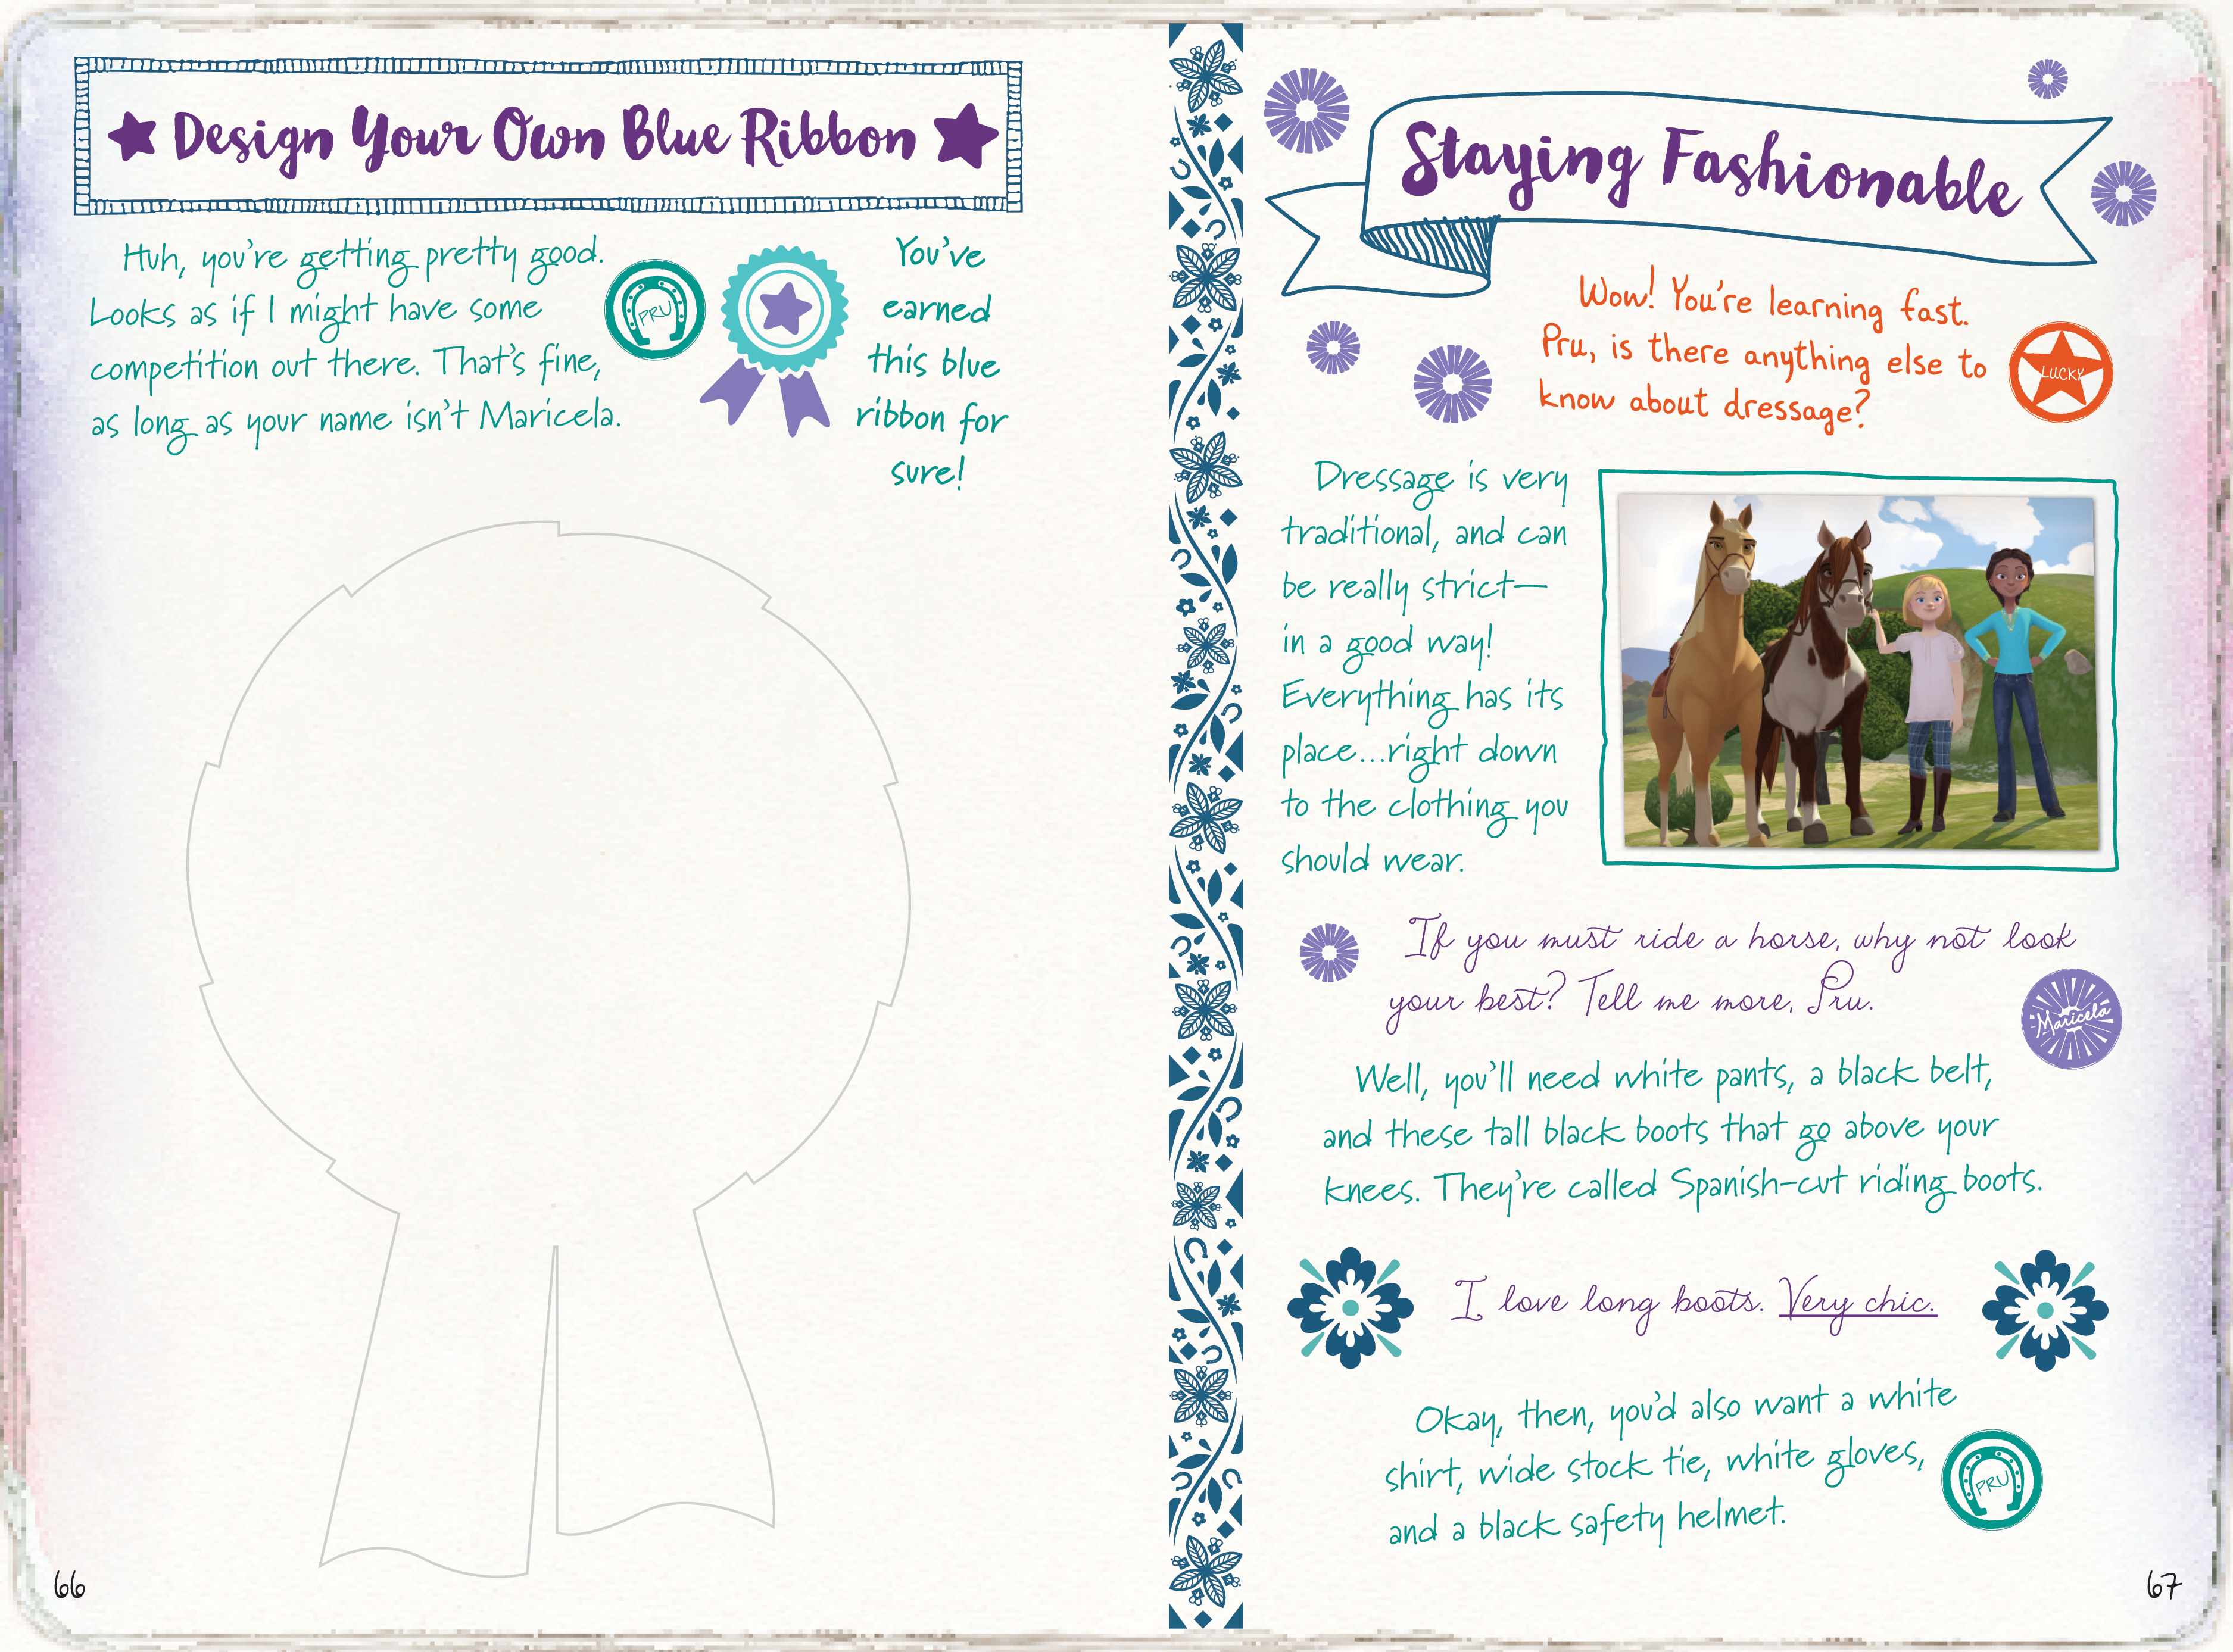 Design Your Own Blue Ribbon
Huh, you're getting pretty good.
Looks as if I might have some
competition out there. That's fine,
as long as your name isn't Maricela.
PRU
You've
earned
this blue
ribbon for
sure!
66
Staying Fashionable
Wow! You're learning fast.
Pru, is there anything else to
know about dressage?
LUCKY
Dressage is very
traditional, and can
be really strict—
in a good way!
Everything has its
place...right down
to the clothing you
should wear.
If you must ride a horse, why not look
your best? Tell me more, Pru.
Maricela
Well, you'll need white pants, a black belt,
and these tall black boots that go above your
knees. They're called Spanish-cut riding boots.
I love long boots. Very chic.
Okay, then, you'd also want a white
shirt, wide stock tie, white gloves,
and a black safety helmet.
PRU
67